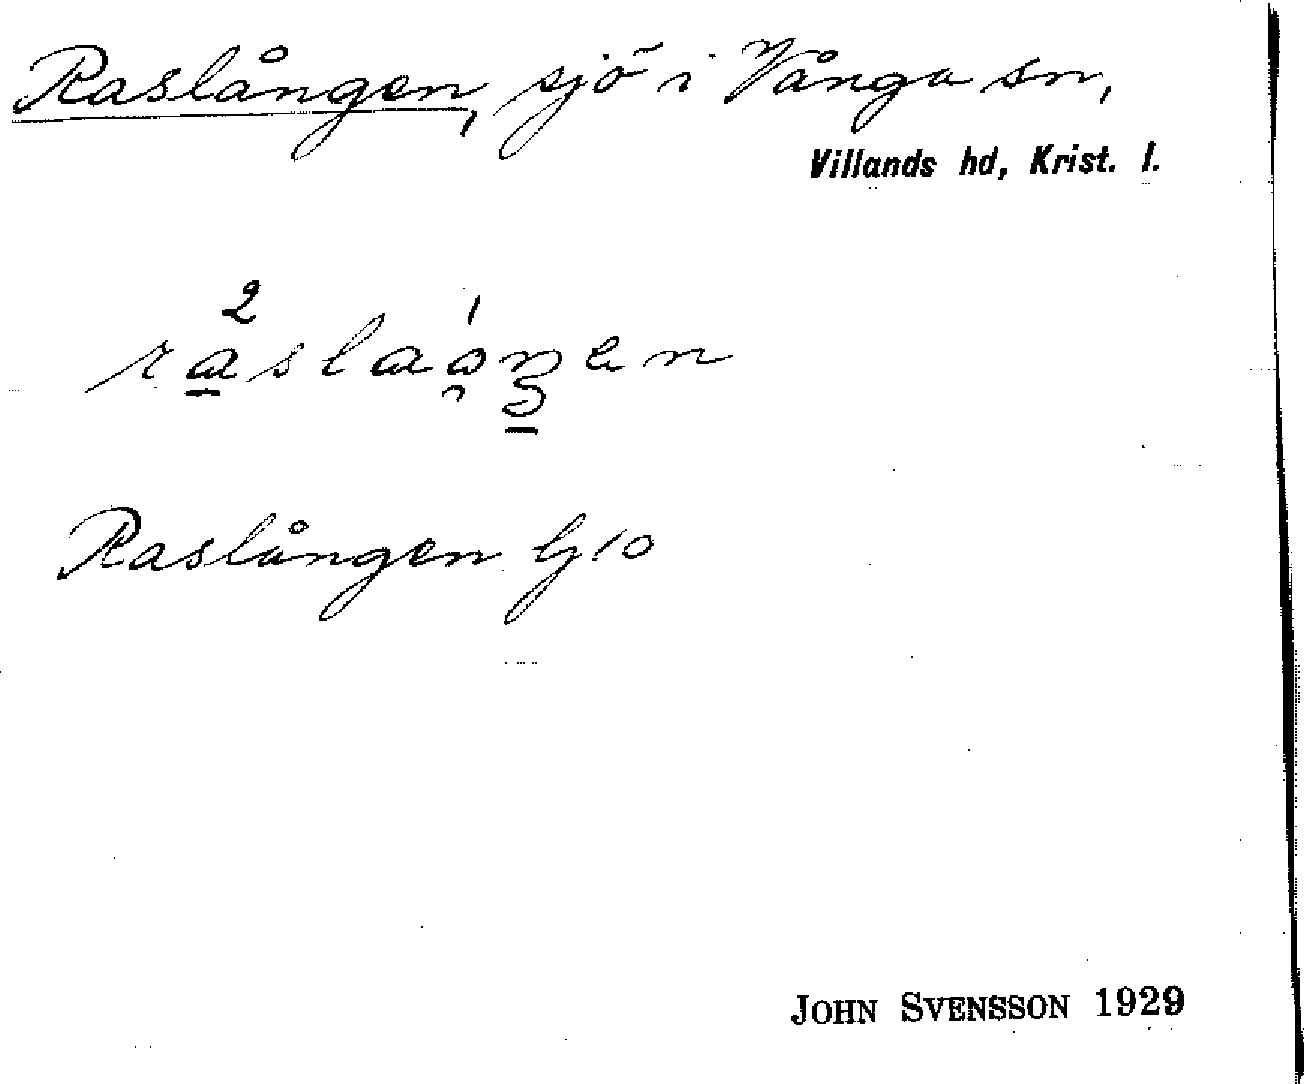 Raslången, sjö i Vånga sn,
Villands hd, Krist. l.
2
raslaången
Raslången Gj 10
JOHN SVENSSON 1929